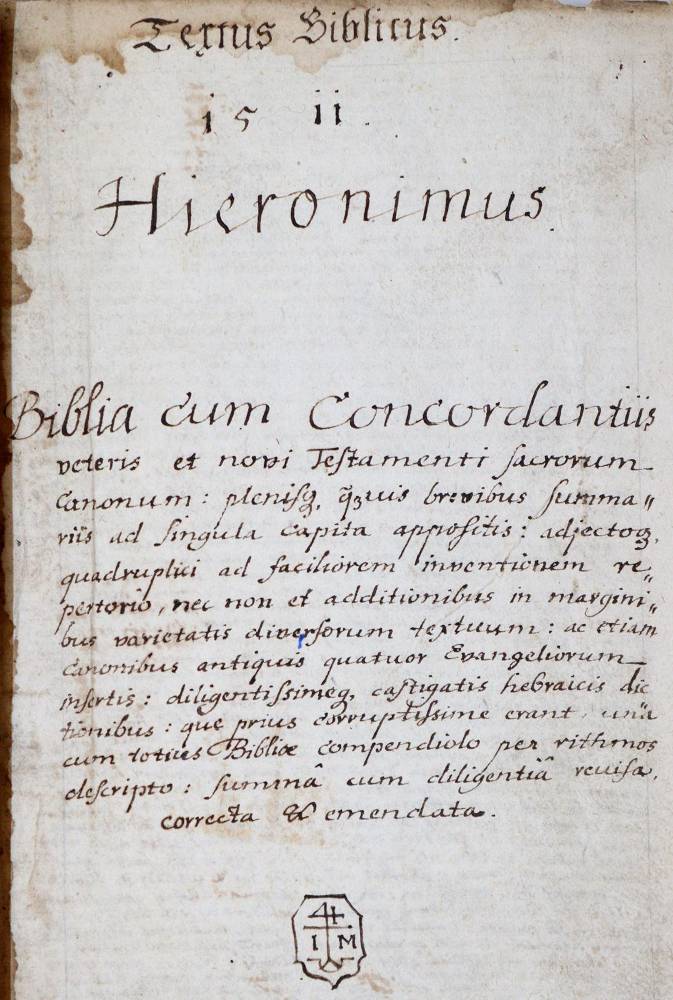 Textus Biblicus.
15 ii.
Hieronimus.
Biblia cum Concordantiis
veteris et novi Testamenti sacrorum
canonum: plenisq, q̃ꝫuis brevibus summa„
riis ad singula capita appositis: adjectoqꝫ,
quadruplici ad faciliorem inventionem re„
pertorio, nec non et additionibus in margini„
bus varietatis diversorum textuum: ac etiam
canonibus antiquis quatuor Evangeliorum
insertis: diligentissimeq, castigatis hebraicis dic
tionibus: que prius corruptissime erant, unâ
cum totius Bibliæ compendiolo per rithmos
descripto: summâ cum diligentiâ revisa,
correcta & emendata.
4
I M